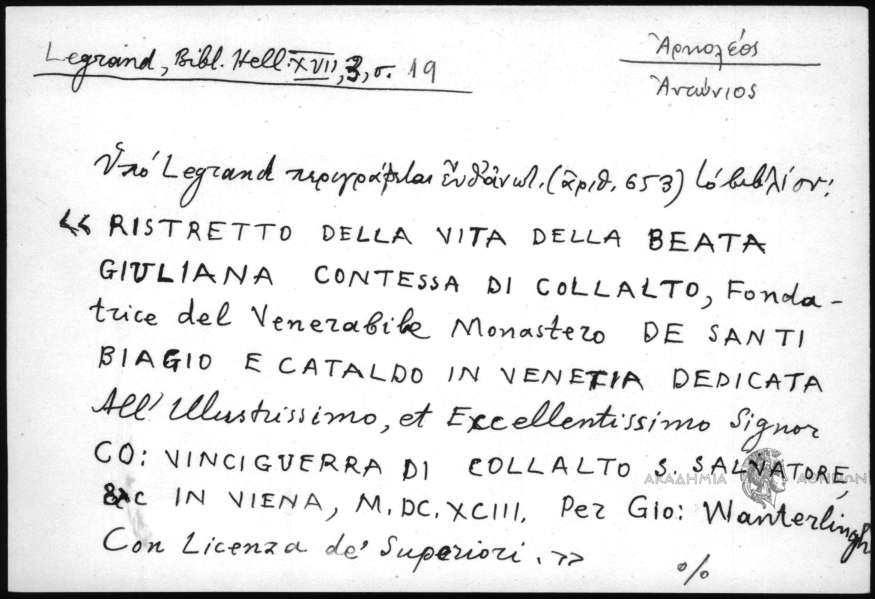 Legrand, Bibl. Hell. XVII, 3, σ. 19
Ἀρκολέος
Ἀντώνιος
Ὑπό Legrand περιγράφεται ἐνθ' ἀνωτ. (ἀριθ. 653) τό βιβλίον:
« RISTRETTO DELLA VITA DELLA BEATA
GIULIANA CONTESSA DI COLLALTO, Fonda-
trice del Venerabile Monastero DE SANTI
BIAGIO E CATALDO IN VENETIA DEDICATA
All' Illustrissimo, et Excellentissimo Signor
CO: VINCIGUERRA DI COLLALTO S. SALVATORE,
ΑΚΑΔΗΜΙΑ ΑΘΗΝΩΝ
&c IN VIENA, M.DC.XCIII. Per Gio: Wanterlingh
Con Licenza de' Superiori. »
%